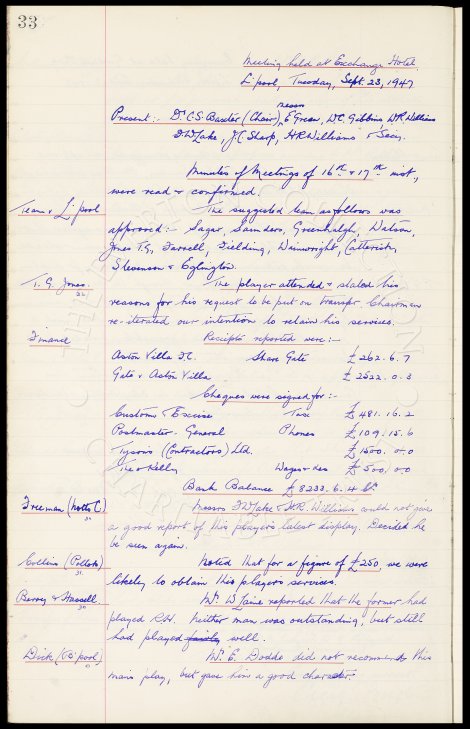 33
Meeting held at Exchange Hotel,
L'pool, Tuesday, Sept. 23, 1947
Present:- Dr C.S. Baxter (Chair), Messrs E Green, W.C. Gibbins, W.R. Williams
F.W. Lake, J.C. Sharp, H.R. Williams & Secy.
Minutes of Meetings of 16th & 17th inst,
were read & confirmed.
Team v L'pool The suggested team as follows was
approved:- Sagar, Saunders, Greenhalgh, Watson,
Jones T.G, Farrell, Fielding, Wainwright, Catterick,
Stevenson & Eglington.
T. G. Jones. The player attended & stated his
reasons for his request to be put on transfer. Chairman
re-iterated our intention to retain his services.
Finance Receipts reported were:-
Aston Villa F.C. Share Gate £262. 6. 7
Gate v Aston Villa £2522. 0. 3
Cheques were signed for:-
Customs & Excise Tax £481. 16. 2
Postmaster-General Phones £109. 15. 6
Tysons (Contractors) Ltd. £1500. 0. 0
Theo Kelly Wages &c £500. 0. 0
Bank Balance £8233. 6. 4
Freeman (Notts C) Messrs F.W. Lake & H.R. Williams could not give
a good report of this player's latest display. Decided he
be seen again.
Collins Noted that for a figure of £250, we were
likely to obtain this player's services.
Berry & Hassell Mr. reported that the former had
played R.H. Neither man was outstanding, but still
had played fairly well.
Dick Mr. E. Dodds did not recommend this
mans play, but gave him a good character.